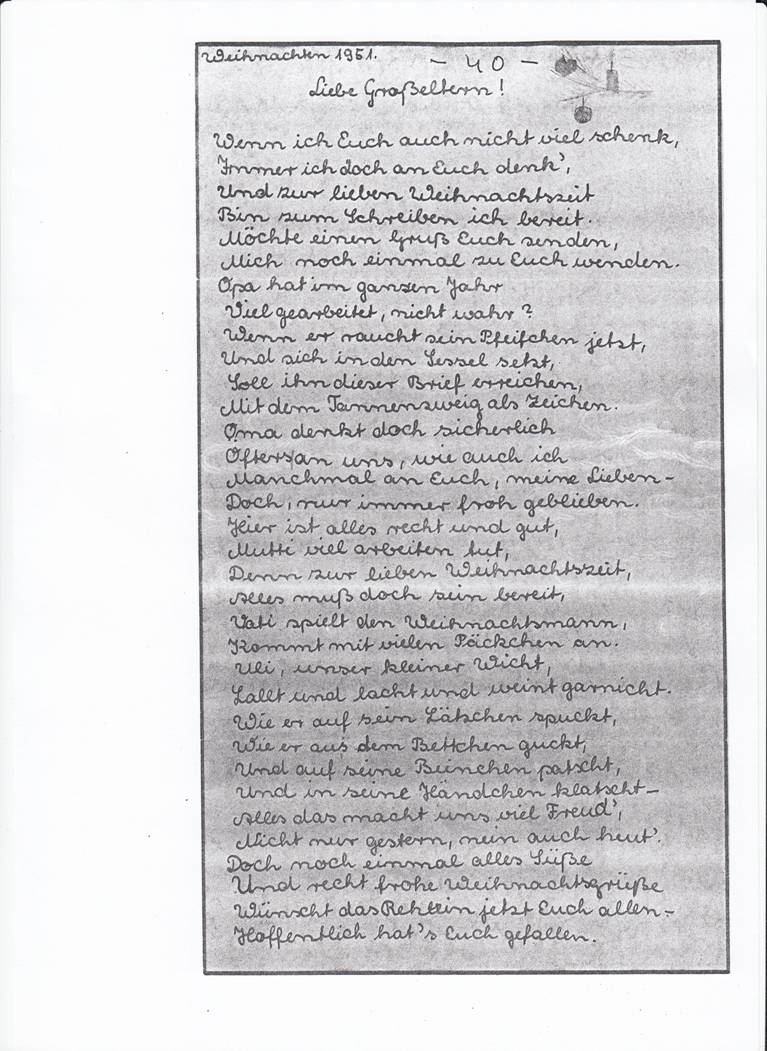 Weihnachten 1951.
- 40 -
Liebe Großeltern!
Wenn ich Euch auch nicht viel schenk,
Immer ich doch an Euch denk',
Und zur lieben Weihnachtszeit
Bin zum Schreiben ich bereit.
Möchte einen Gruß Euch senden,
Mich noch einmal zu Euch wenden.
Opa hat im ganzen Jahr
Viel gearbeitet, nicht wahr?
Wenn er raucht sein Pfeifchen jetzt,
Und sich in den Sessel setzt,
Soll ihn dieser Brief erreichen,
Mit dem Tannenzweig als Zeichen.
Oma denkt doch sicherlich
Öfters an uns, wie auch ich
Manchmal an Euch, meine Lieben-
Doch, nur immer froh geblieben.
Hier ist alles recht und gut,
Mutti viel arbeiten tut,
Denn zur lieben Weihnachtszeit,
Alles muß doch sein bereit,
Vati spielt den Weihnachtsmann,
Kommt mit vielen Päckchen an.
Uli, unser kleiner Wicht,
Lallt und lacht und weint garnicht.
Wie er auf sein Lätzchen spuckt,
Wie er aus dem Bettchen guckt,
Und auf seine Beinchen patscht,
Und in seine Händchen klatscht-
Alles das macht uns viel Freud',
Nicht nur gestern, nein auch heut'.
Doch noch einmal alles Süße
Und recht frohe Weihnachtsgrüße
Wünscht das Rehlein jetzt Euch allen-
Hoffentlich hat's Euch gefallen.